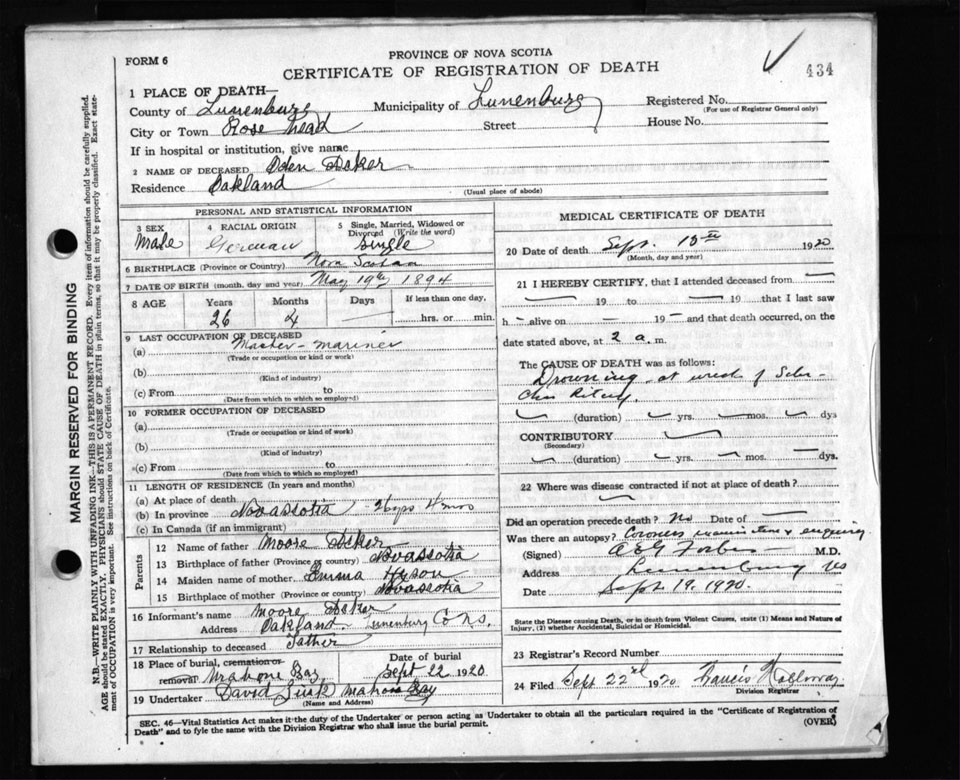 PROVINCE OF NOVA SCOTIA
FORM 6
CERTIFICATE OF REGISTRATION OF DEATH
434
1 PLACE OF DEATH—
County of Lunenburg Municipality of Lunenburg Registered No.
(For use of Registrar General only)
City or Town Rose Head Street House No.
If in hospital or institution, give name
2 NAME OF DECEASED Oden Acker
Residence Oakland
(Usual place of abode)
PERSONAL AND STATISTICAL INFORMATION
3 SEX Male
4 RACIAL ORIGIN German
5 Single, Married, Widowed or Divorced (Write the word) Single
6 BIRTHPLACE (Province or Country) Nova Scotian
7 DATE OF BIRTH (month, day and year) May 19th 1894
8 AGE Years Months Days If less than one day,
26 4 — hrs. or min.
9 LAST OCCUPATION OF DECEASED
(a) Master-mariner
(Trade or occupation or kind or work)
(b)
(Kind of industry)
(c) From to
(Date from which to which so employed)
10 FORMER OCCUPATION OF DECEASED
(a)
(Trade or occupation or kind or work)
(b)
(Kind of industry)
(c) From to
(Date from which to which so employed)
11 LENGTH OF RESIDENCE (In years and months)
(a) At place of death
(b) In province Nova Scotia - 26 yrs 4 mos
(c) In Canada (if an immigrant)
Parents
12 Name of father Moore Acker
13 Birthplace of father (Province or country) Nova Scotia
14 Maiden name of mother Emma Hyson
15 Birthplace of mother (Province or country) Nova Scotia
16 Informant's name Moore Acker
Address Oakland Lunenburg Co N.S.
17 Relationship to deceased Father
18 Place of burial, cremation or removal Mahone Bay
Date of burial Sept 22 1920
19 Undertaker David Mahone Bay
(Name and Address)
MEDICAL CERTIFICATE OF DEATH
20 Date of death Sept. 1920
(Month, day and year)
21 I HEREBY CERTIFY, that I attended deceased from —
— 19 to — 19 that I last saw
h — alive on — 19 — and that death occurred, on the
date stated above, at 2 a. m.
The CAUSE OF DEATH was as follows:
Drowning at wreck of Schr
(duration) yrs. mos. dys
CONTRIBUTORY
(Secondary)
(duration) yrs. mos. dys.
22 Where was disease contracted if not at place of death?
Did an operation precede death? No Date of —
Was there an autopsy? Coroners enquiry
(Signed) Forbes M.D.
Address Lunenburg NS
Date Sept. 19. 1920.
State the Disease causing Death, or in death from Violent Causes, state (1) Means and Nature of
Injury, (2) whether Accidental, Suicidal or Homicidal.
23 Registrar's Record Number
24 Filed Sept 22nd 1920 Francis
Division Registrar
SEC. 46—Vital Statistics Act makes it the duty of the Undertaker or person acting as Undertaker to obtain all the particulars required in the "Certificate of Registration of
Death" and to fyle the same with the Division Registrar who shall issue the burial permit.
(OVER)
MARGIN RESERVED FOR BINDING
N.B.—WRITE PLAINLY WITH UNFADING INK—THIS IS A PERMANENT RECORD. Every item of information should be carefully supplied.
AGE should be stated EXACTLY. PHYSICIANS should STATE CAUSE OF DEATH in plain terms, so that it may be properly classified. Exact statement of OCCUPATION is very important. See instructions on back of Certificate.